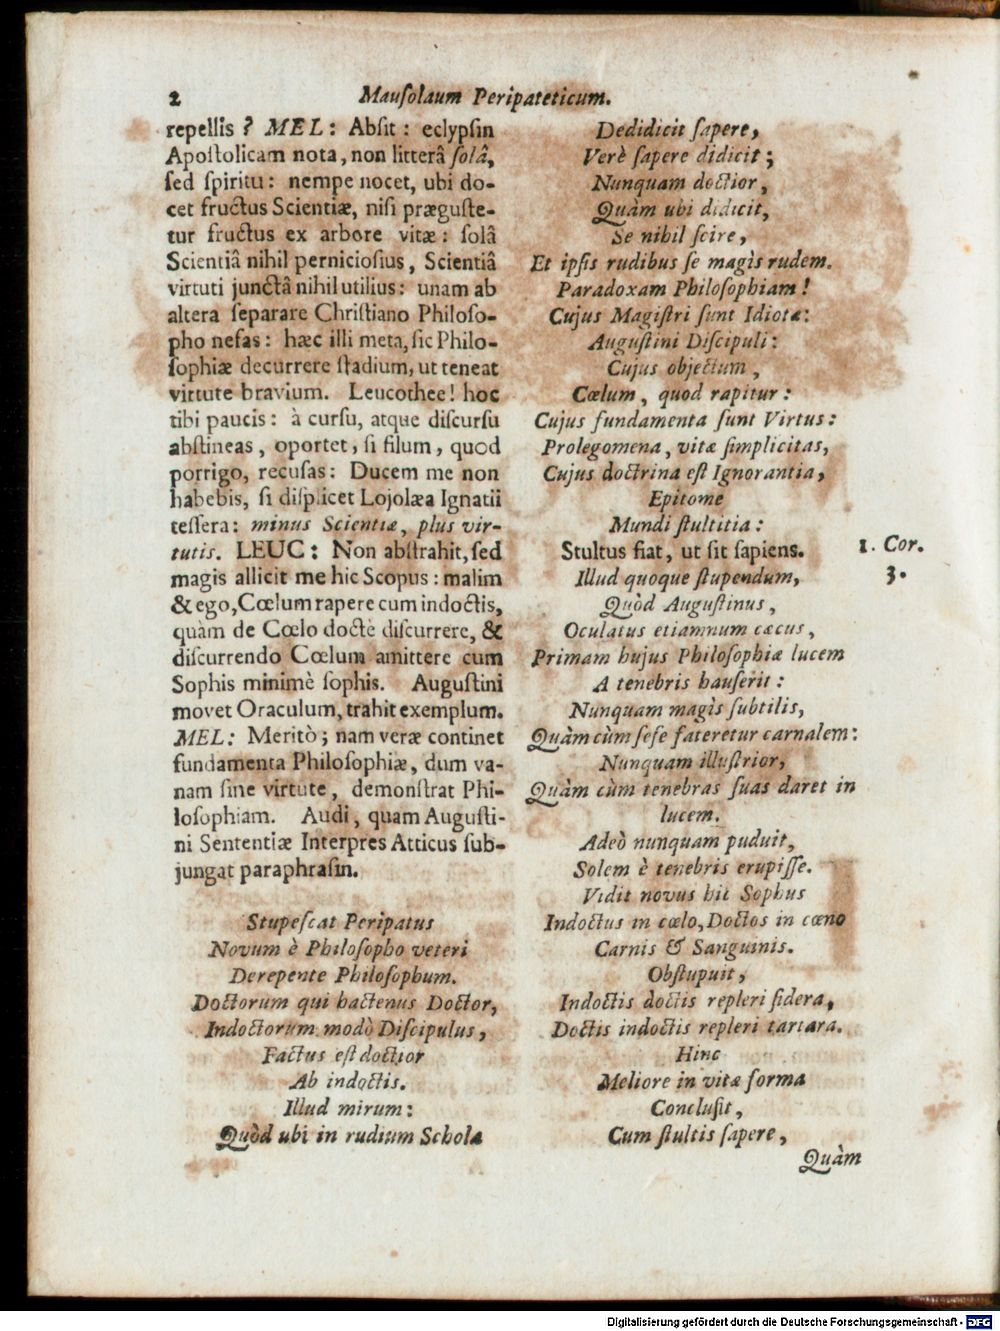 2
Mausolæum Peripateticum.
repellis ? MEL: Absit : eclypsin
Apostolicam nota, non litterâ solâ,
sed spiritu: nempe nocet, ubi do-
cet fructus Scientiæ, nisi præguste-
tur fructus ex arbore vitæ : solâ
Scientiâ nihil perniciosius, Scientiâ
virtuti junctâ nihil utilius: unam ab
altera separare Christiano Philoso-
pho nefas: hæc illi meta, sic Philo-
sophiæ decurrere stadium, ut teneat
virtute bravium. Leucothee! hoc
tibi paucis: à cursu, atque discursu
abstineas, oportet, si filum, quod
porrigo, recusas: Ducem me non
habebis, si displicet Lojolæa Ignatii
tessera: minus Scientiæ, plus vir-
tutis. LEUC: Non abstrahit, sed
magis allicit me hic Scopus : malim
& ego, Cœlum rapere cum indoctis,
quàm de Cœlo doctè discurrere, &
discurrendo Cœlum amittere cum
Sophis minimè sophis. Augustini
movet Oraculum, trahit exemplum.
MEL: Meritò; nam veræ continet
fundamenta Philosophiæ, dum va-
nam sine virtute, demonstrat Phi-
losophiam. Audi, quam Augusti-
ni Sententiæ Interpres Atticus sub-
jungat paraphrasin.
Stupescat Peripatus
Novum è Philosopho veteri
Derepente Philosophum.
Doctorum qui hactenus Doctor,
Indoctorum modò Discipulus,
Factus est doctior
Ab indoctis.
Illud mirum:
Quòd ubi in rudium Schola
Dedidicit sapere,
Verè sapere didicit;
Nunquam doctior,
Quàm ubi didicit,
Se nihil scire,
Et ipsis rudibus se magìs rudem.
Paradoxam Philosophiam!
Cujus Magistri sunt Idiotæ:
Augustini Discipuli:
Cujus objectum,
Cœlum, quod rapitur:
Cujus fundamenta sunt Virtus:
Prolegomena, vitæ simplicitas,
Cujus doctrina est Ignorantia,
Epitome
Mundi stultitia:
Stultus fiat, ut sit sapiens.
1. Cor.
3.
Illud quoque stupendum,
Quòd Augustinus,
Oculatus etiamnum cæcus,
Primam hujus Philosophiæ lucem
A tenebris hauserit:
Nunquam magìs subtilis,
Quàm cùm sese fateretur carnalem:
Nunquam illustrior,
Quàm cùm tenebras suas daret in
lucem.
Adeò nunquam puduit,
Solem è tenebris erupisse.
Vidit novus hic Sophus
Indoctus in cœlo, Doctos in cœno
Carnis & Sanguinis.
Obstupuit,
Indoctis doctis repleri sidera,
Doctis indoctis repleri tartara.
Hinc
Meliore in vitæ forma
Conclusit,
Cum stultis sapere,
Quàm
Digitalisierung gefördert durch die Deutsche Forschungsgemeinschaft - DFG